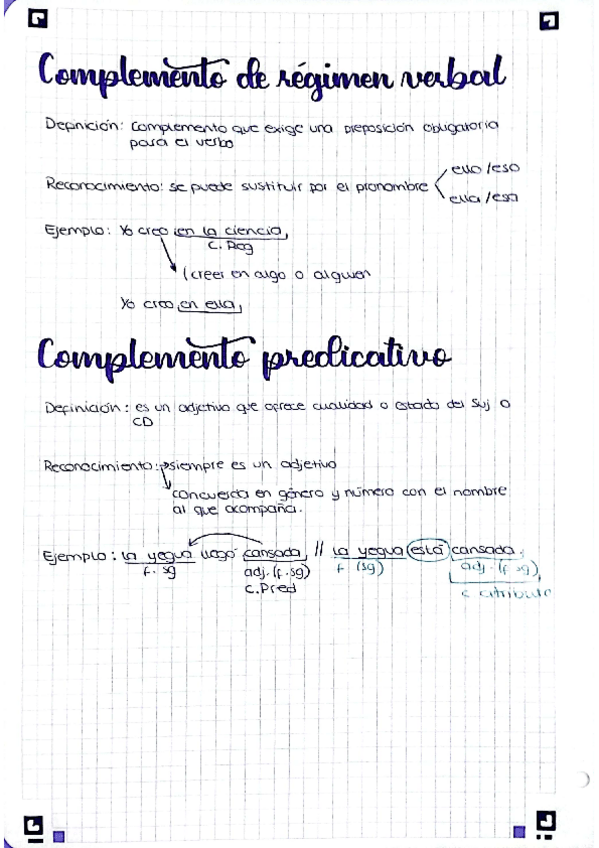 Complemento de régimen verbal
Definición: complemento que exige una preposición obligatoria
para el verbo
Reconocimiento: se puede sustituir por el pronombre ello/eso
ella/esa
Ejemplo: Yo creo en la ciencia,
C. Reg
(creer en algo o alguien
Yo creo en ella,
Complemento predicativo
Definición: es un adjetivo que ofrece cualidad o estado del Suj o
CD
Reconocimiento: siempre es un adjetivo
concuerda en género y número con el nombre
al que acompaña.
Ejemplo: la yegua llegó cansada, // la yegua está cansada.
f. sg adj. (f. sg) f (sg) adj. (f sg)
C.Pred c atributo